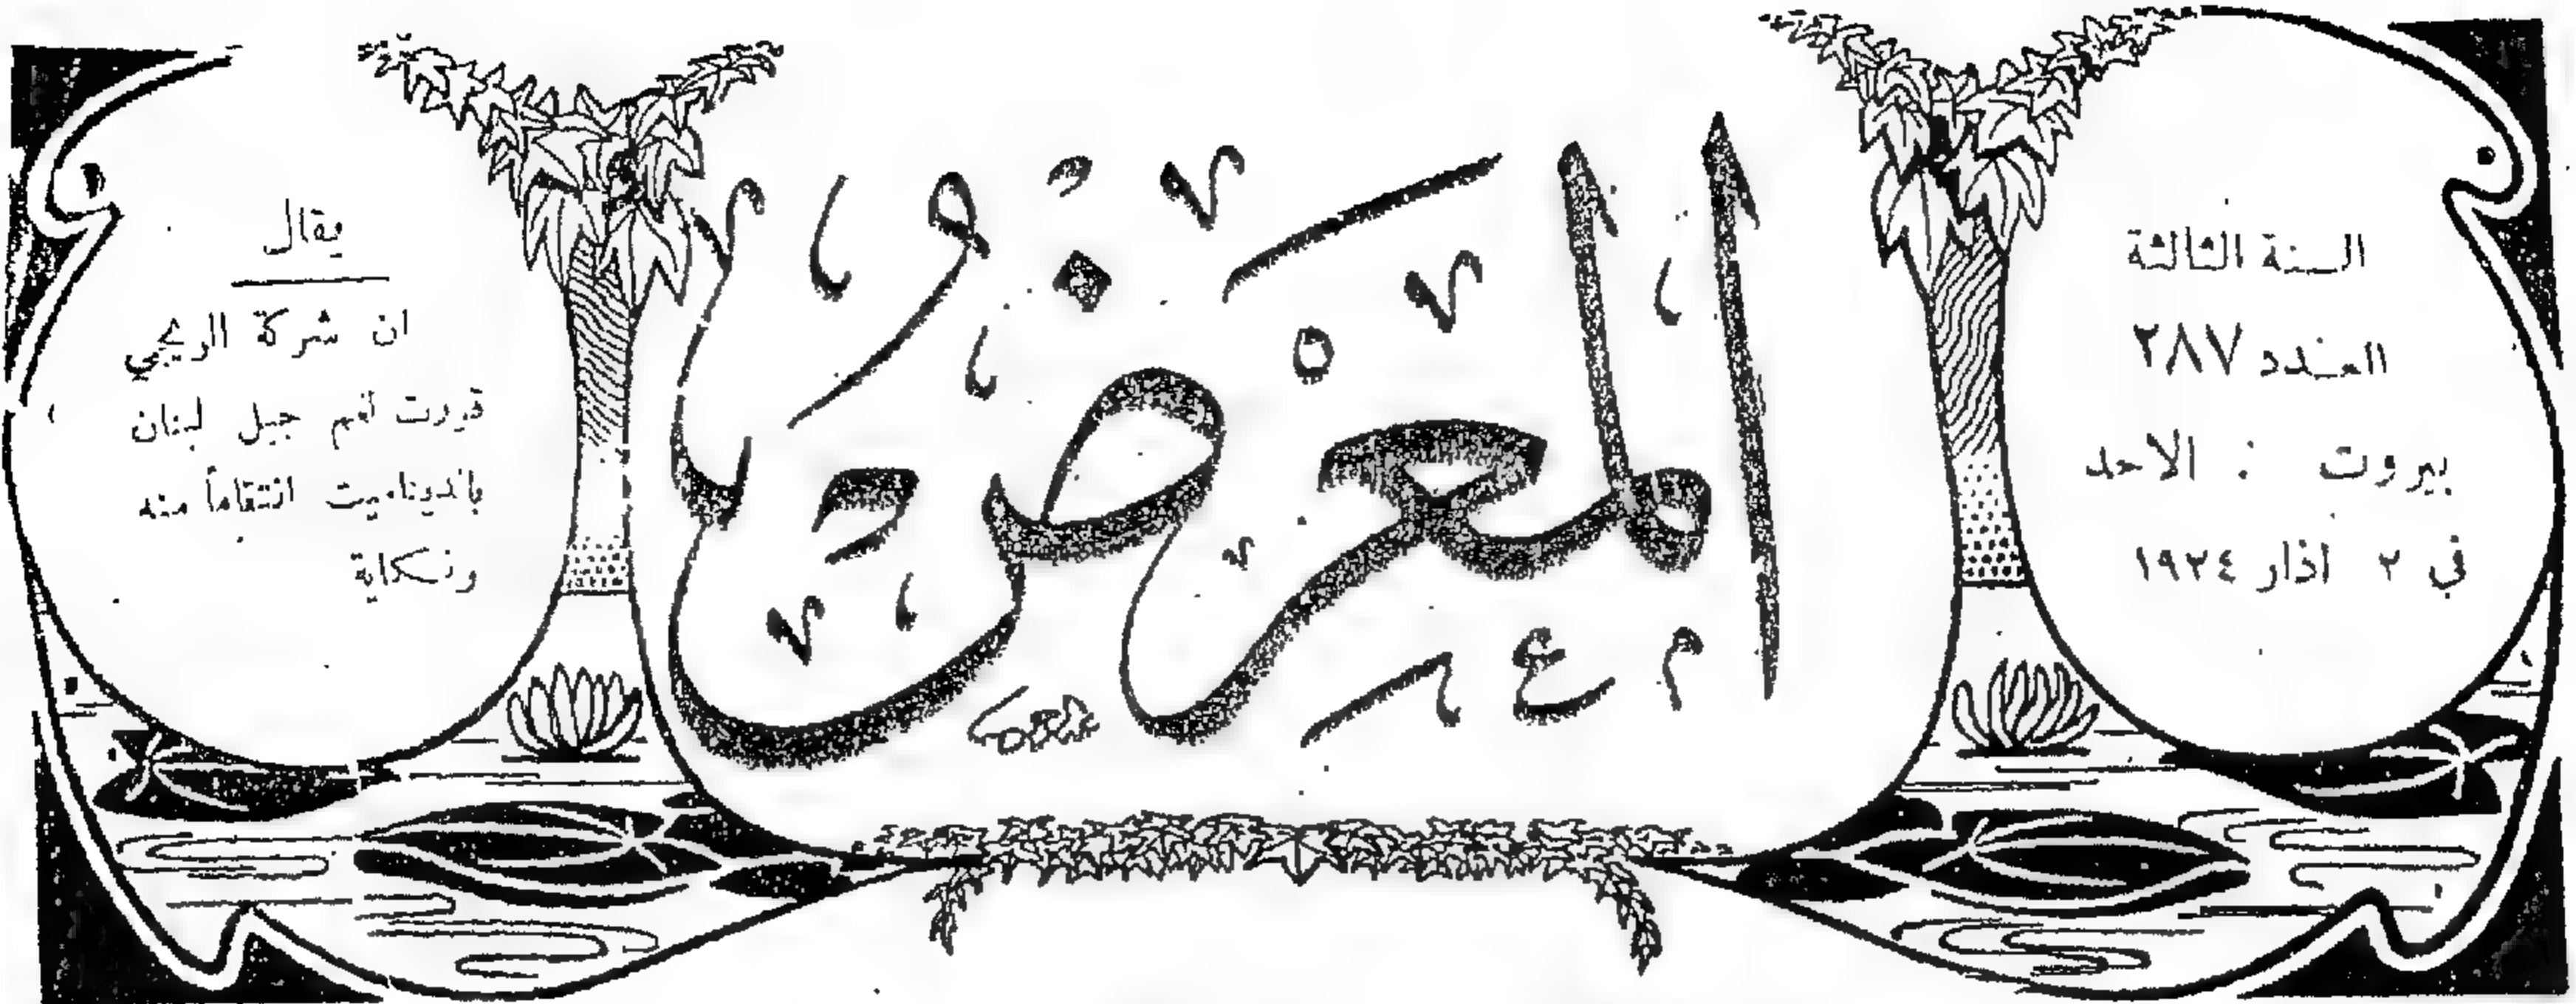 السنة الثالثة
العدد ٢٨٧
بيروت : الاحد
في ٢ اذار ١٩٢٤
المعرض
يقال
ان شركة الريجي
قررت لغم جبل لبنان
بالديناميت انتقاماً منه
ونكاية